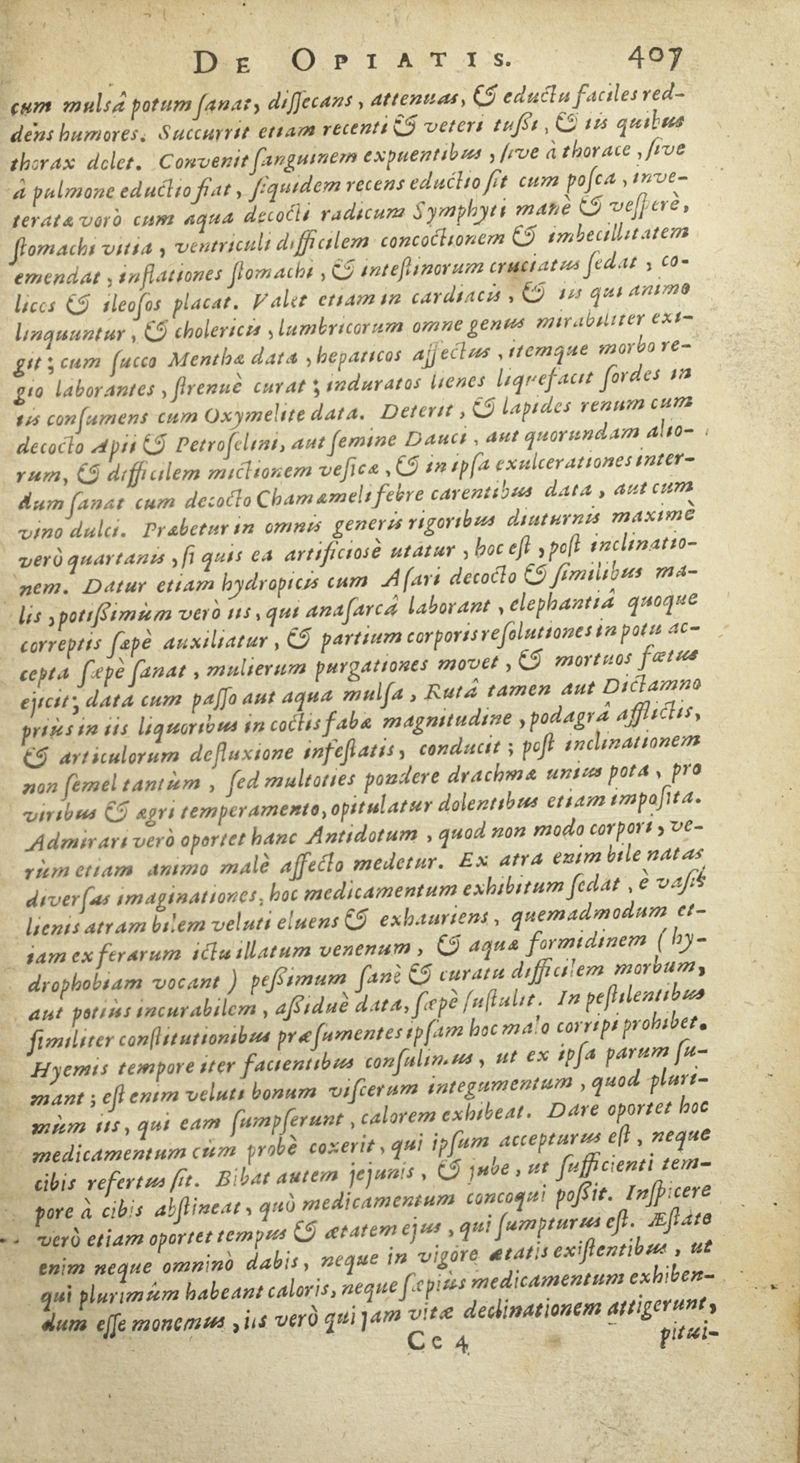 DE OPIATIS. 407
cum mulsâ potum sanat, dissecans, attenuas, & eductu faciles red-
dens humores. Succurrit etiam recenti & veteri tußi, & iis quibus
thorax dolet. Convenit sanguinem expuentibus, sive à thorace, sive
à pulmone eductio fiat, siquidem recens eductio sit cum posca, inve-
terata verò cum aqua decocti radicum Symphyti manè & vespere,
stomachi vitia, ventriculi difficilem concoctionem & imbecillitatem
emendat, inflationes stomachi, & intestinorum cruciatus sedat, co-
licos & ileosos placat. Valet etiam in cardiacis, & iis qui animo
linquuntur, & cholericis, lumbricorum omne genus mirabiliter exi-
git; cum succo Menthæ data, hepaticos affectus, itemque morbo re-
gio laborantes, strenuè curat; induratos lienes liquefacit sordes in
iis consumens cum Oxymelite data. Deterit, & lapides renum cum
decocto Apii & Petroselini, aut semine Dauci, aut quorundam alio-
rum, & difficilem mictionem vesicæ, & in ipsa exulcerationes inter-
dum sanat cum decocto Chamæmeli febre carentibus data, aut cum
vino dulci. Præbetur in omnis generis rigoribus diuturnis maximè
verò quartanis, si quis ea artificiosè utatur, hoc est, post inclinatio-
nem. Datur etiam hydropicis cum Asari decocto & similibus ma-
lis, potißimùm verò iis, qui anasarcâ laborant, elephantiâ quoque
correptis sæpè auxiliatur, & partium corporis resolutiones in potu ac-
cepta sæpè sanat, mulierum purgationes movet, & mortuos fœtus
ejicit; data cum passo aut aqua mulsa, Rutâ tamen aut Dictamno
priùs in iis liquoribus in coctis fabæ magnitudine, podagrâ afflictis,
& articulorum defluxione infestatis, conducit; post inclinationem
non semel tantùm, sed multoties pondere drachmæ unius pota, pro
viribus & ægri temperamento, opitulatur dolentibus etiam imposita.
Admirari verò oportet hanc Antidotum, quod non modo corpori, ve-
rùm etiam animo malè affecto medetur. Ex atra enim bile natas
diversas imaginationes, hoc medicamentum exhibitum sedat, è vasis
lienis atram bilem veluti eluens & exhauriens, quemadmodum et-
iam ex ferarum ictu illatum venenum, & aquæ formidinem (hy-
drophobiam vocant) peßimum sanè & curatu difficilem morbum,
aut potiùs incurabilem, aßiduè data, sæpè sustulit. In pestilentibus
similiter constitutionibus præsumentes ipsam hoc malo corripi prohibet.
Hyemis tempore iter facientibus consulimus, ut ex ipsa parum su-
mant; est enim veluti bonum viscerum integumentum, quod pluri-
mùm iis, qui eam sumpserunt, calorem exhibeat. Dare oportet hoc
medicamentum cùm probè coxerit, qui ipsum accepturus est, neque
cibis refertus sit. Bibat autem jejunis, & jube, ut sufficienti tem-
pore à cibis abstineat, quò medicamentum concoqui poßit. Inspicere
verò etiam oportet tempus & ætatem ejus, qui sumpturus est. Æstate
enim neque omninò dabis, neque in vigore ætatis existentibus, ut
qui plurimùm habeant caloris, neque sæpiùs medicamentum exhiben-
dum esse monemus, iis verò qui jam vitæ declinationem attigerunt,
Cc 4 pitui-